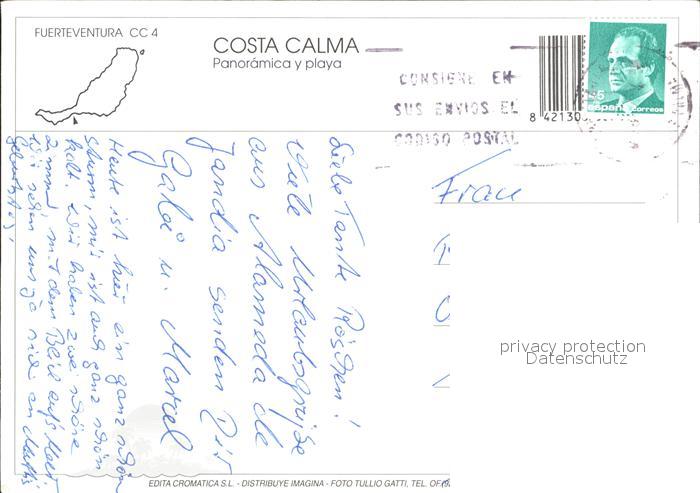 FUERTEVENTURA CC 4
COSTA CALMA
Panorámica y playa
CONSIGNE EN
SUS ENVIOS EL
CODIGO POSTAL
8 42130
España correos
Liebe Tante Röschen!
Viele Urlaubsgrüße
aus Alameda de
Jandia senden Dir
Gabi u. Marcel
Heute ist hier ein ganz schön
Sturm, mir ist auch ganz schön
kalt. Wir haben zwei schöne
Zimmer mit dem Blick aufs Meer
Wir sehen uns ja an
Geburtstag!
Frau
privacy protection
Datenschutz
EDITA CROMATICA S.L. - DISTRIBUYE IMAGINA - FOTO TULLIO GATTI, TEL. OF.